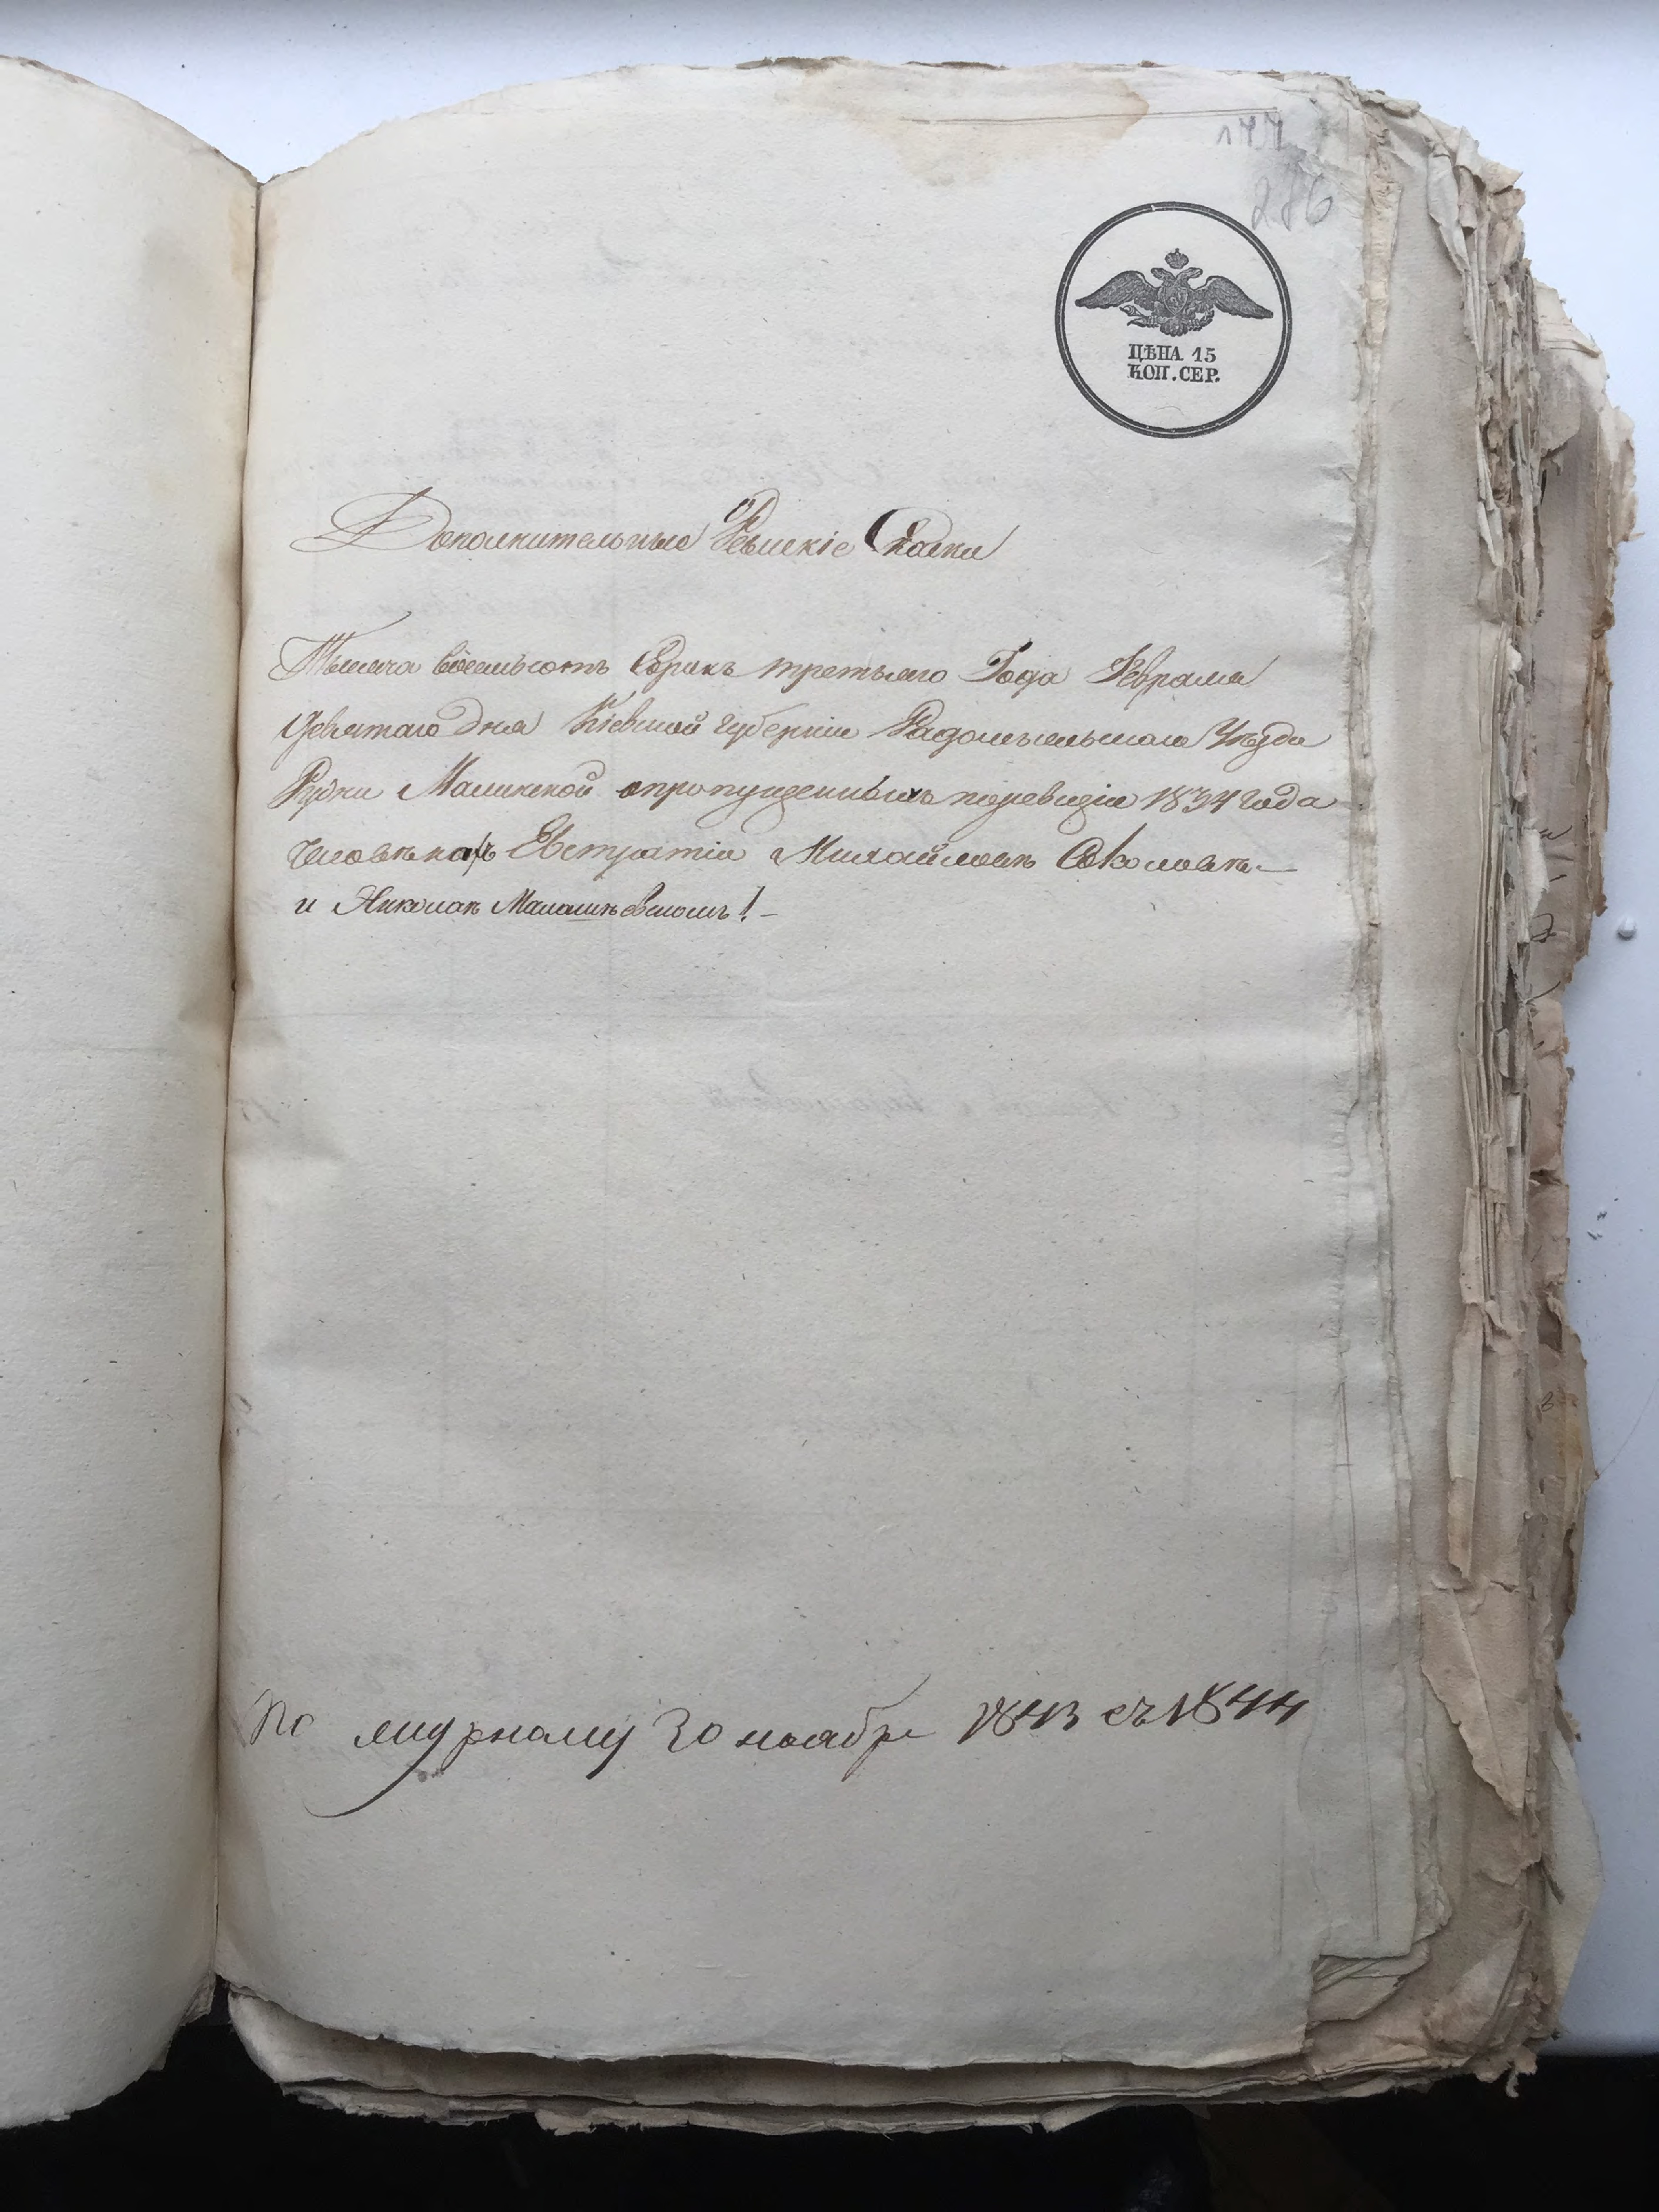 177
286
ЦѢНА 15
КОП. СЕР.
Дополнительные Ревискіе Скаски
Тысяча восемьсотъ Сорикъ третьяго Года Февраля
девятаго дня Кіевской губерніи Радомысльскаго Уѣзда
Рудни Малинской опропущенныхъ поревизіи 1834 года
человѣкахъ Евстратіи Михайловѣ Соколовѣ—
и Николаѣ Малашѣвскомъ! —
По 30 ноября 1843 съ 1844